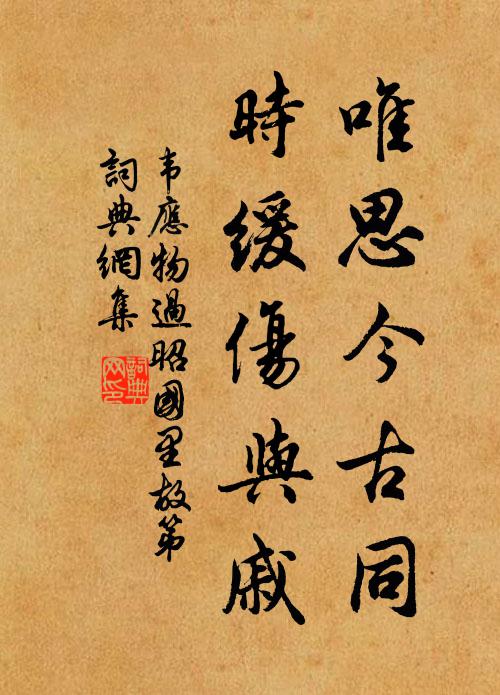 唯思今古同
時緩傷與戚
韦應物過昭國里故第
詞典網集
詞典
网印